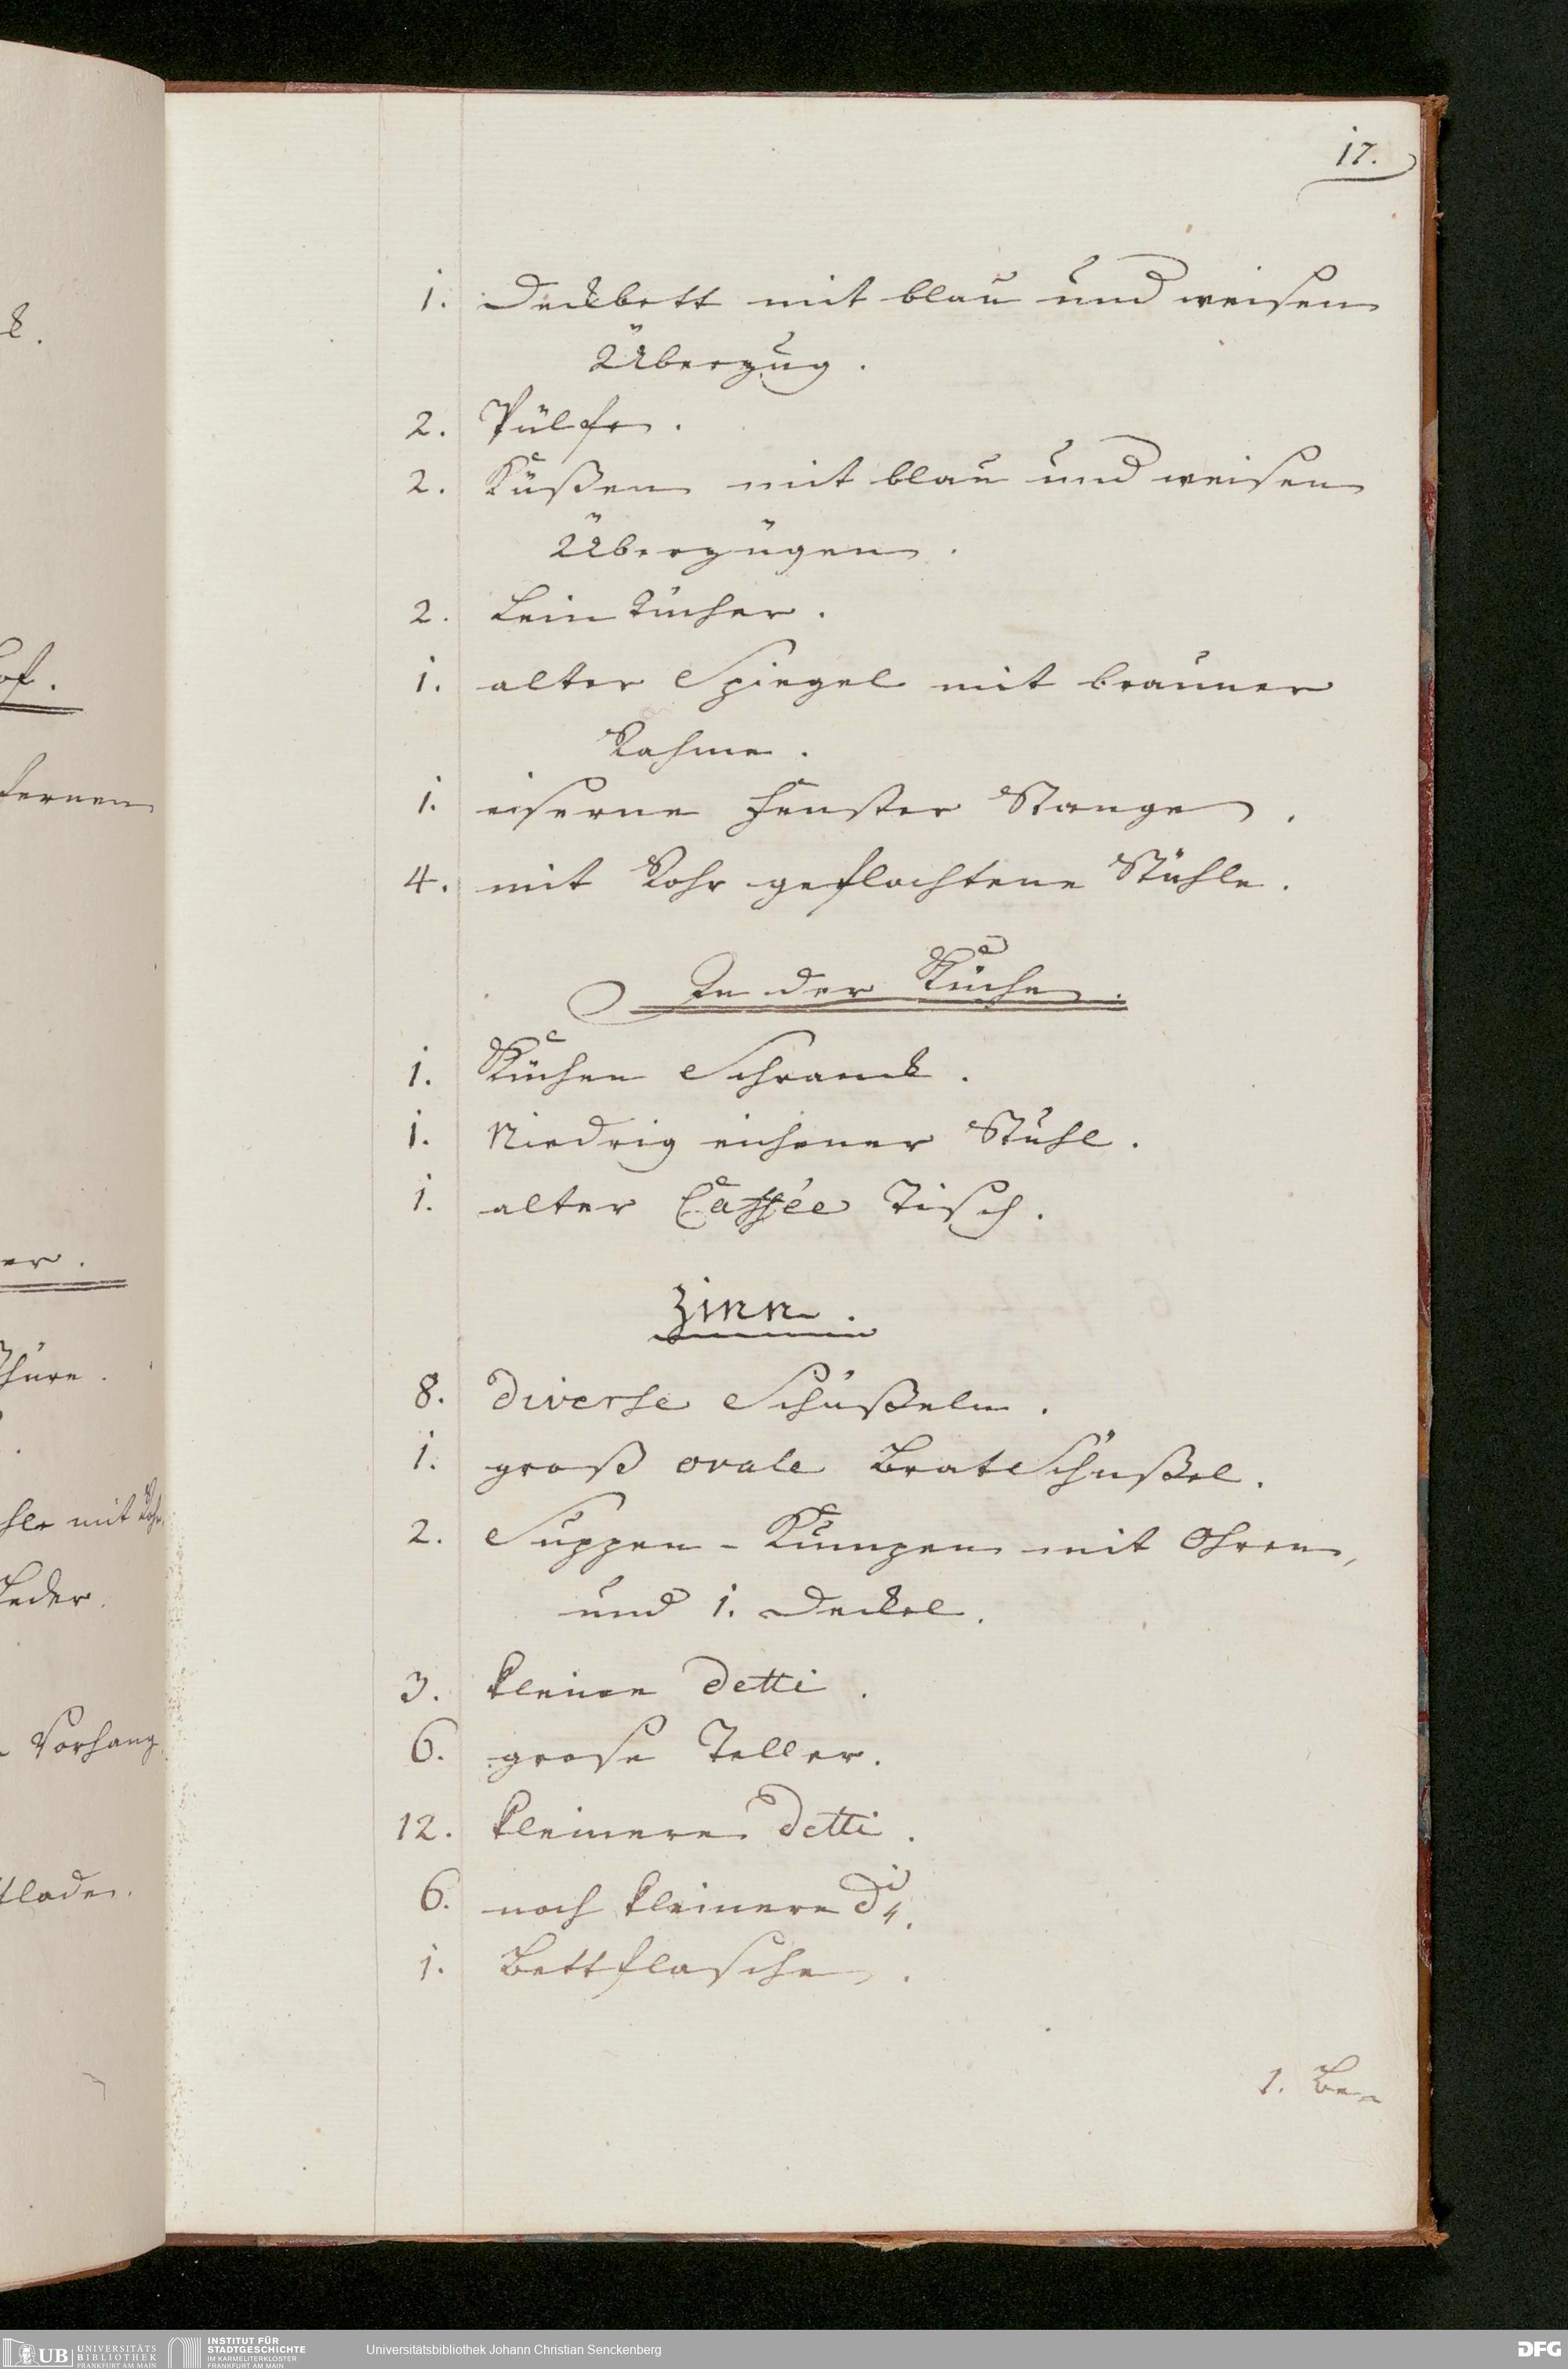 17.
1. Deckbett mit blau und weisen
Überzug.
2. Pülfe.
2. Küßen mit blau und weisen
Überzügen.
2. Leintücher.
1. alter Spiegel mit brauner
Rahme.
1. eiserne Fenster Stange.
4. mit Rohr geflochtene Stühle.
In der Küche.
1. Küchen Schranck.
1. Niedrig eichener Stuhl.
1. alter Caffée Tisch.
Zinn.
8. diverse Schüßeln.
1. groß ovale BratSchüßel.
2. Suppen-Kumpen mit Ohren,
und 1. Deckel.
3. kleine detti.
6. grose Teller.
12. kleinere detti.
6. noch kleinere di
1. Bettflasche.
1. Be-
k.
of.
fernen
er.
Thüre.
hle mit Rohr
Leder.
Vorhang
tlade.
UB UNIVERSITÄTS
BIBLIOTHEK
FRANKFURT AM MAIN
INSTITUT FÜR
STADTGESCHICHTE
IM KARMELITERKLOSTER
FRANKFURT AM MAIN
Universitätsbibliothek Johann Christian Senckenberg
DFG